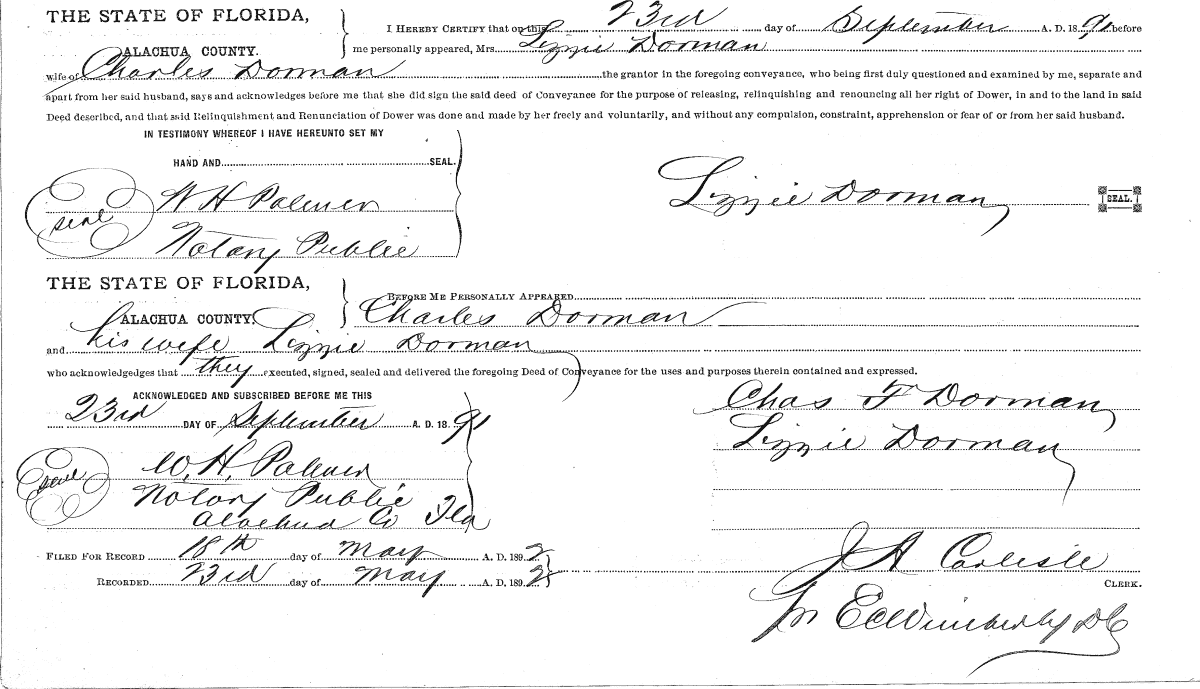 THE STATE OF FLORIDA,
ALACHUA COUNTY.
I HEREBY CERTIFY that on this 23rd day of September A. D. 1891 before
me personally appeared, Mrs. Lizzie Dorman
wife of Charles Dorman the grantor in the foregoing conveyance, who being first duly questioned and examined by me, separate and
apart from her said husband, says and acknowledges before me that she did sign the said deed of Conveyance for the purpose of releasing, relinquishing and renouncing all her right of Dower, in and to the land in said
Deed described, and that said Relinquishment and Renunciation of Dower was done and made by her freely and voluntarily, and without any compulsion, constraint, apprehension or fear of or from her said husband.
IN TESTIMONY WHEREOF I HAVE HEREUNTO SET MY
HAND AND SEAL.
seal W H Palmer
Notary Public
Lizzie Dorman SEAL.
THE STATE OF FLORIDA,
ALACHUA COUNTY.
BEFORE ME PERSONALLY APPEARED
Charles Dorman
and his wife Lizzie Dorman
who acknowledgedges that they executed, signed, sealed and delivered the foregoing Deed of Conveyance for the uses and purposes therein contained and expressed.
ACKNOWLEDGED AND SUBSCRIBED BEFORE ME THIS
23rd DAY OF September A. D. 18 91
seal W. H. Palmer
Notary Public
Alachua Co Fla
Chas F Dorman
Lizzie Dorman
FILED FOR RECORD 18th day of May A. D. 1892
RECORDED 23rd day of May A. D. 1892
J A Carlisle
CLERK.
E C Wimberly D C